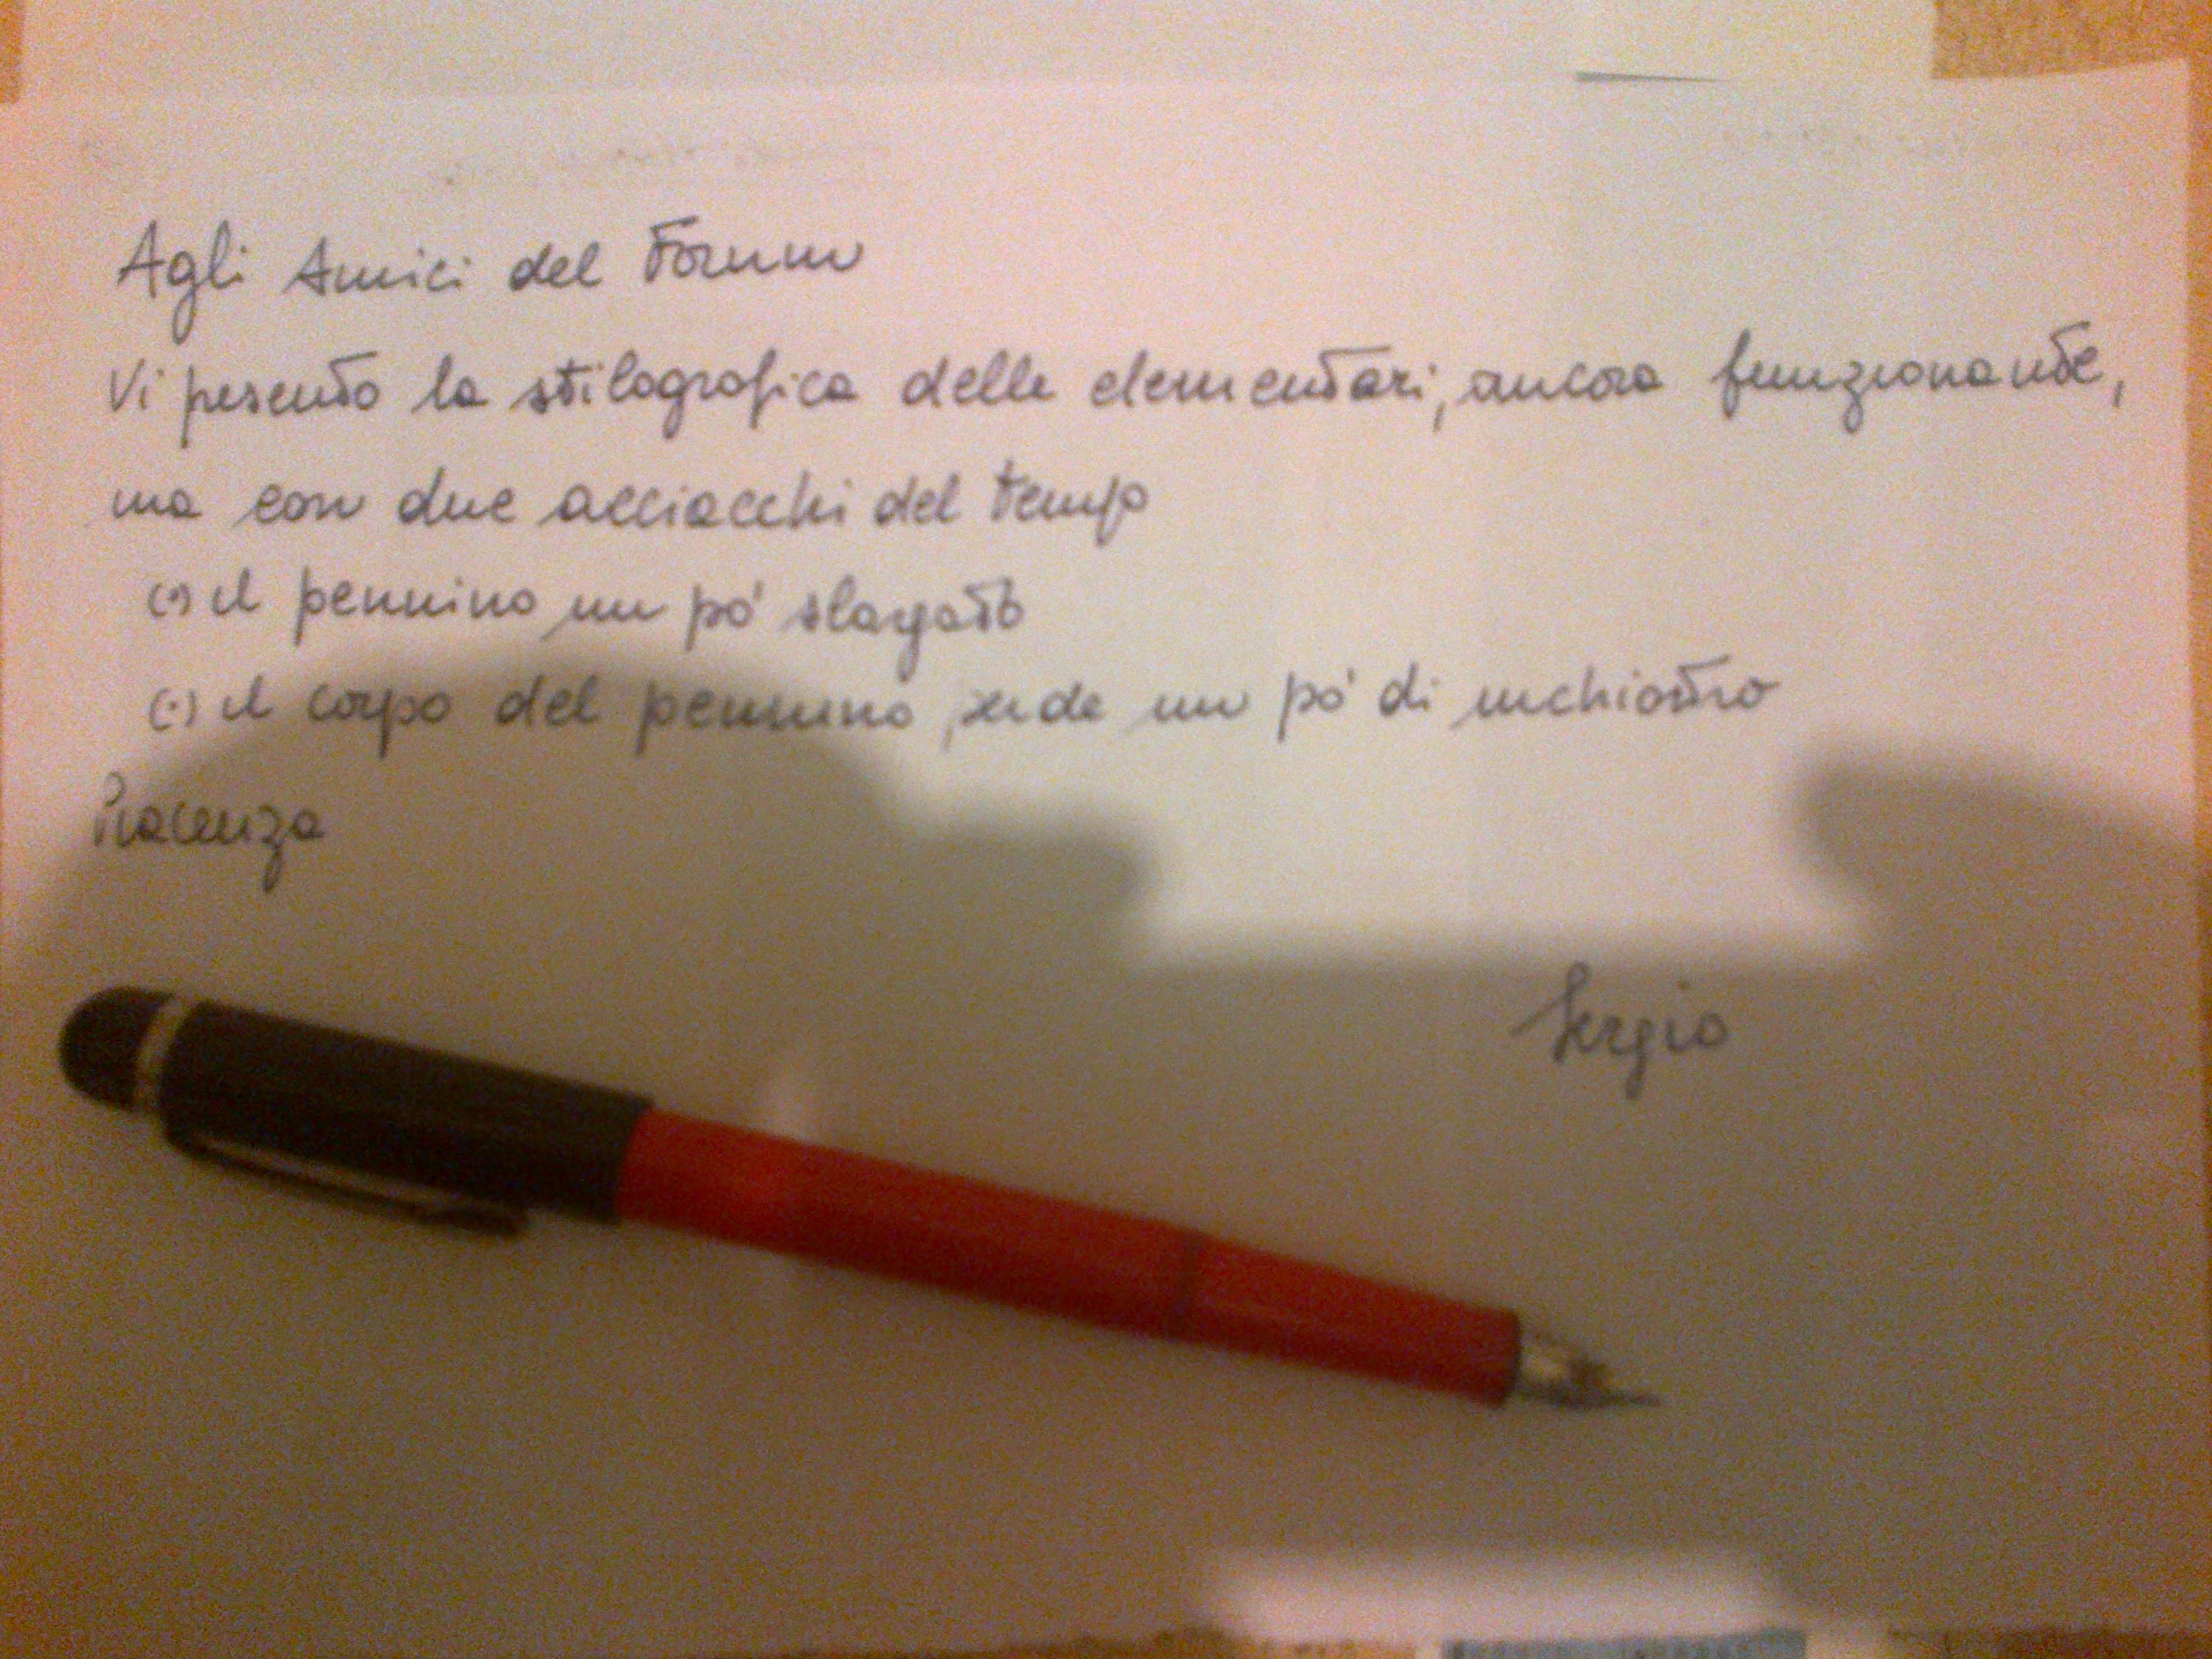 Agli Amici del Forum
Vi presento la stilografica delle elementari, ancora funzionante,
ma con due acciacchi del tempo
(•) il pennino un pò slargato
(•) il corpo del pennino, suda un pò di inchiostro
Piacenza
Sergio